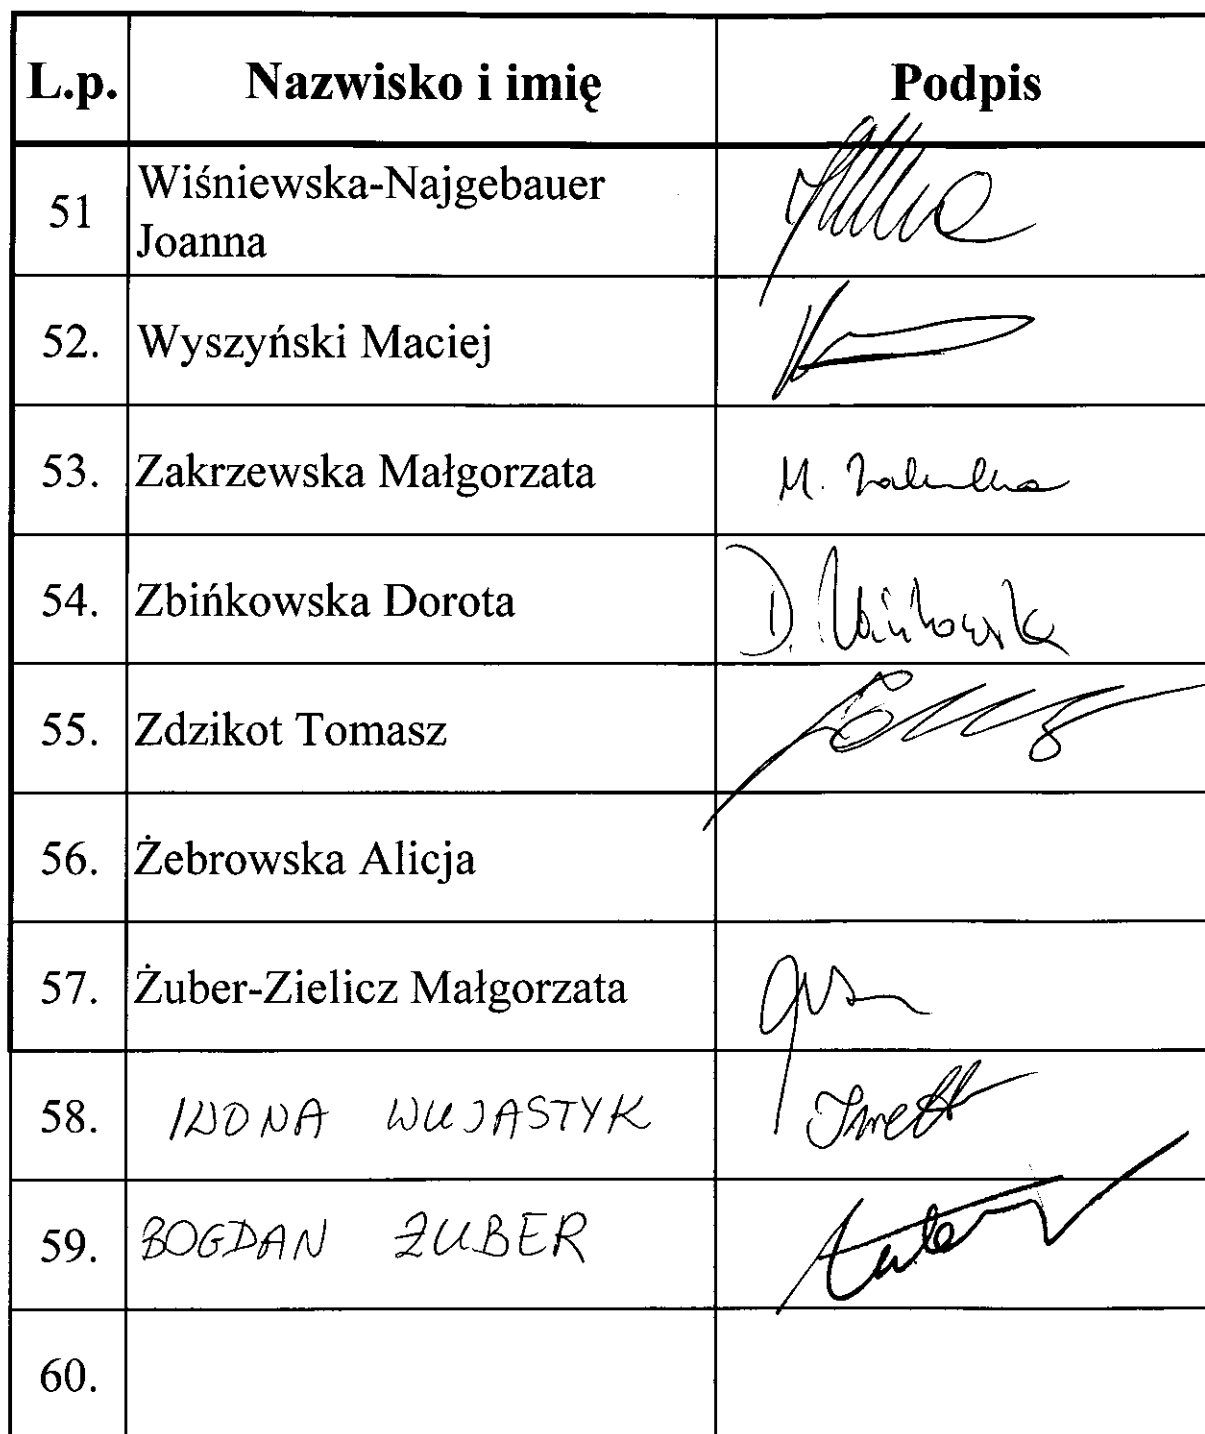 L.p. Nazwisko i imię Podpis
51 Wiśniewska-Najgebauer
Joanna
52. Wyszyński Maciej
53. Zakrzewska Małgorzata M.
54. Zbińkowska Dorota D. Zbińkowska
55. Zdzikot Tomasz
56. Żebrowska Alicja
57. Żuber-Zielicz Małgorzata
58. IWONA WUJASTYK
59. BOGDAN ŻUBER
60.